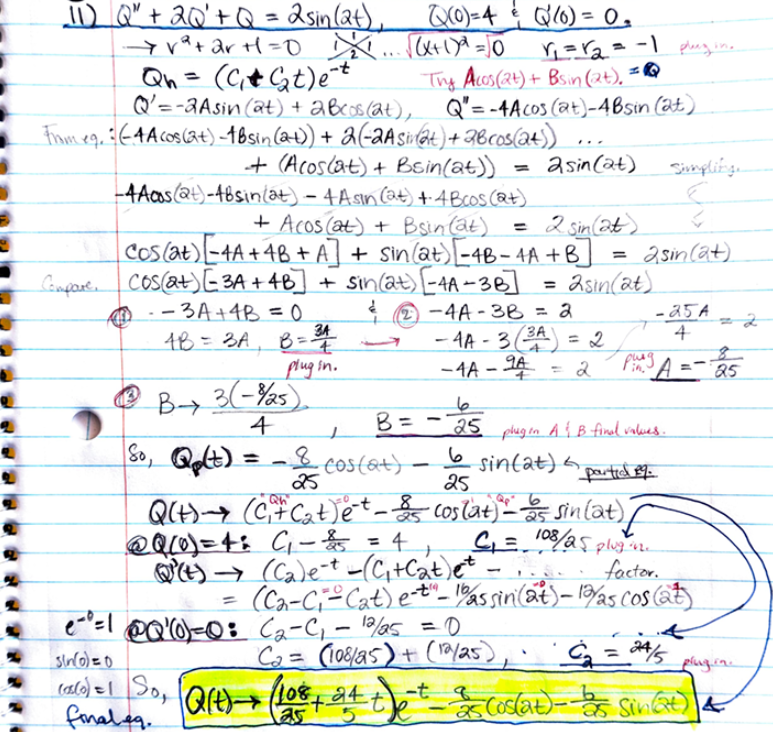 11) Q'' + 2Q' + Q = 2sin(2t), Q(0)=4 & Q'(0) = 0.
→ r² + 2r + 1 = 0 ... √(x+1)² = √0 r₁ = r₂ = -1 plug in.
Qh = (C₁ + C₂t)e^-t Try Acos(2t) + Bsin(2t). = Q
Q' = -2Asin(2t) + 2Bcos(2t), Q'' = -4Acos(2t) - 4Bsin(2t)
From eq. : (-4Acos(2t) - 4Bsin(2t)) + 2(-2Asin(2t) + 2Bcos(2t)) ...
+ (Acos(2t) + Bsin(2t)) = 2sin(2t) simplify.
-4Acos(2t) - 4Bsin(2t) - 4Asin(2t) + 4Bcos(2t)
+ Acos(2t) + Bsin(2t) = 2sin(2t)
cos(2t)[-4A + 4B + A] + sin(2t)[-4B - 4A + B] = 2sin(2t)
Compare. cos(2t)[-3A + 4B] + sin(2t)[-4A - 3B] = 2sin(2t)
① -3A + 4B = 0 & ② -4A - 3B = 2 -25A/4 = 2
4B = 3A, B = 3A/4 → -4A - 3(3A/4) = 2
plug in. -4A - 9A/4 = 2 plug in. A = -8/25
③ B → 3(-8/25)/4 , B = -6/25 plug in A & B final values.
So, Qp(t) = -8/25 cos(2t) - 6/25 sin(2t)
Q(t) → (C₁ + C₂t)e^-t - 8/25 cos(2t) - 6/25 sin(2t)
"Qh" =0 "Qp"
@Q(0)=4: C₁ - 8/25 = 4, C₁ = 108/25 plug in.
Q'(t) → (C₂)e^-t - (C₁ + C₂t)e^-t - ..... factor.
= (C₂ - C₁ - C₂t)e^-t + 16/25 sin(2t) - 12/25 cos(2t)
e^-0 = 1 @Q'(0)=0: C₂ - C₁ - 12/25 = 0
sin(0) = 0 C₂ = (108/25) + (12/25), C₂ = 24/5 plug in.
cos(0) = 1 So, Q(t) → (108/25 + 24/5 t)e^-t - 8/25 cos(2t) - 6/25 sin(2t)
final eq.